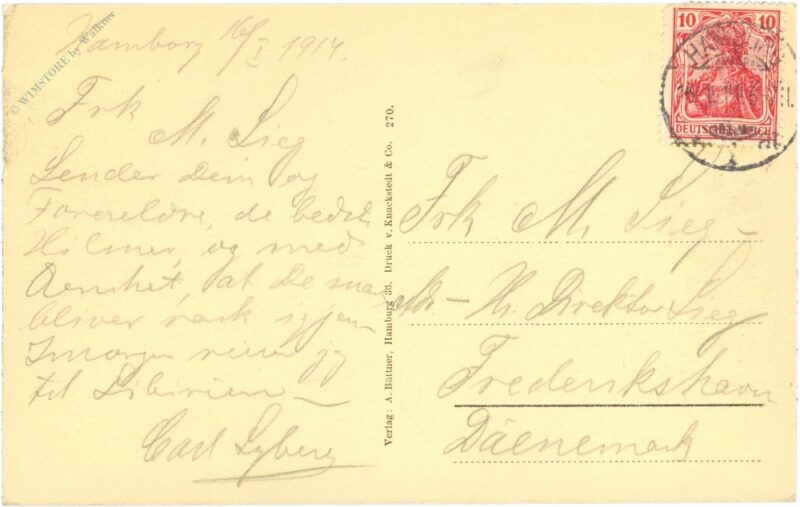 © WIMSTORE by Walkner
Hamborg 16/I 1914.
Frk
M. Sieg
Sender Dem og
Foreldre, de bedste
Hilsner, og med
Oensket, at De snart
bliver rask igjen
Imorgen reiser jeg
til Siberien —
Carl
Verlag: A. Büttner, Hamburg 36. Druck v. Knackstedt & Co. 270.
10 10
DEUTSCHES REICH
HAMBURG
Frk M. Sieg —
Adr — H. Direktor Sieg
Frederikshavn
Däenemark